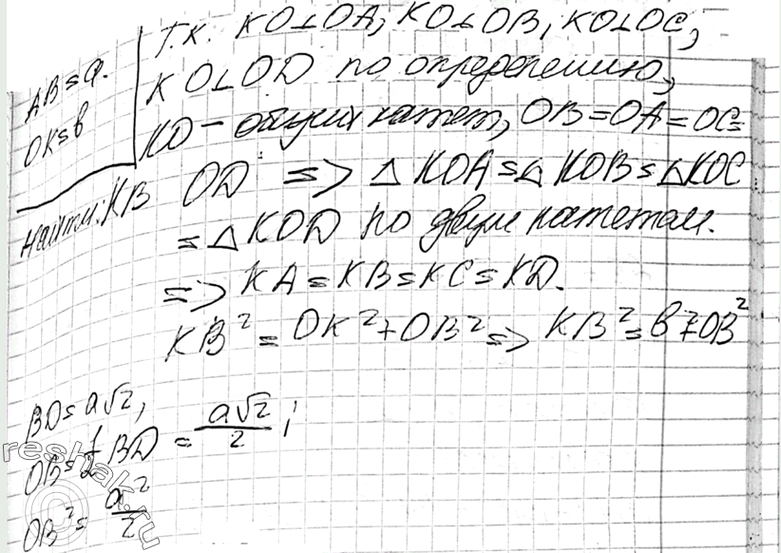 AB = a.
OK = b
Найти: KB
т.к. KO⊥OA, KO⊥OB, KO⊥OC,
KO⊥OD по определению,
KO – общий катет, OB = OA = OC =
OD => △KOA = △KOB = △KOC
= △KOD по двум катетам.
=> KA = KB = KC = KD.
KB² = OK² + OB² => KB² = b² + OB²
BD = a√2,
OB = 1/2 BD = a√2/2 ;
OB² = a²/2
reshak.ru